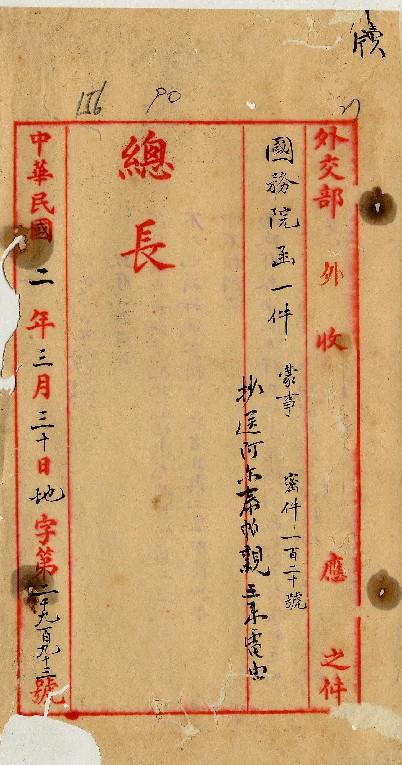 牘
156
90
外交部 外 收 應 之件
國務院函一件 蒙事 密件一百二十號
抄送阿尔泰帕親王來電由
總長
中華民國二年三月三十日地字第二千九百九十三號